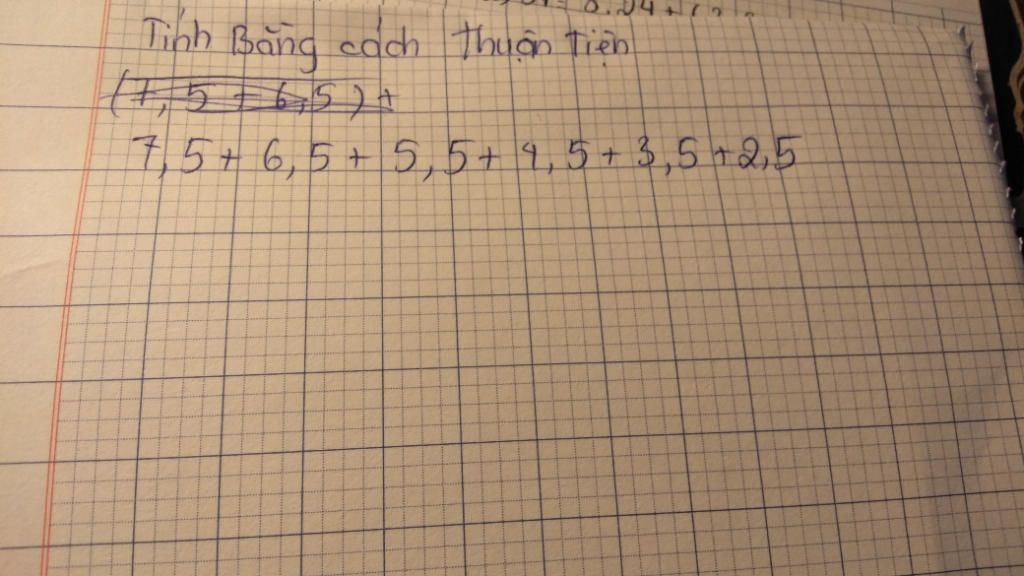 Tính Bằng cách thuận tiện
(7,5 + 6,5) +
7,5 + 6,5 + 5,5 + 4,5 + 3,5 + 2,5